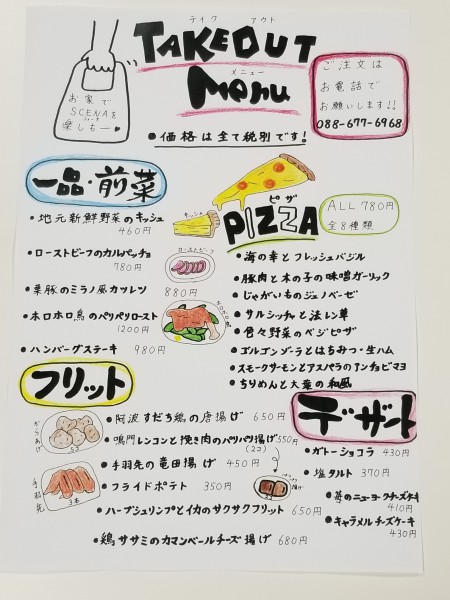 テイク アウト
TAKEOUT
メニュー
Menu
お家で
SCENAを
楽しも〜♥
ご注文は
お電話で
お願いします!!
088-677-6968
●価格は全て税別です!
一品・前菜
●地元新鮮野菜のキッシュ
460円
キッシュ
●ローストビーフのカルパッチョ
780円
ローストビーフ
●栗豚のミラノ風カツレツ 880円
●ホロホロ鳥のパリパリロースト
1200円
●ハンバーグステーキ 980円
ピザ
PIZZA
ALL 780円
全8種類
●海の幸とフレッシュバジル
●豚肉と木の子の味噌ガーリック
●じゃがいものジェノベーゼ
●サルシッチャと法レン草
●昔々野菜のベジピザ
●ゴルゴンゾーラとはちみつ・生ハム
●スモークサーモンとアスパラのアンチョビマヨ
●ちりめんと大葉の和風
フリット
からあげ
5コ
手羽先
3本
●阿波すだち鶏の唐揚げ 650円
●鳴門レンコンと挽き肉のパリパリ揚げ 550円
(2コ)
●手羽先の竜田揚げ 450円
●フライドポテト 350円
●ハーブシュリンプとイカのサクサクフリット 650円
●鶏ササミのカマンベールチーズ揚げ 680円
デザート
●ガトーショコラ 430円
●塩タルト 370円
●苺のニューヨークチーズケーキ
410円
●キャラメルチーズケーキ
430円